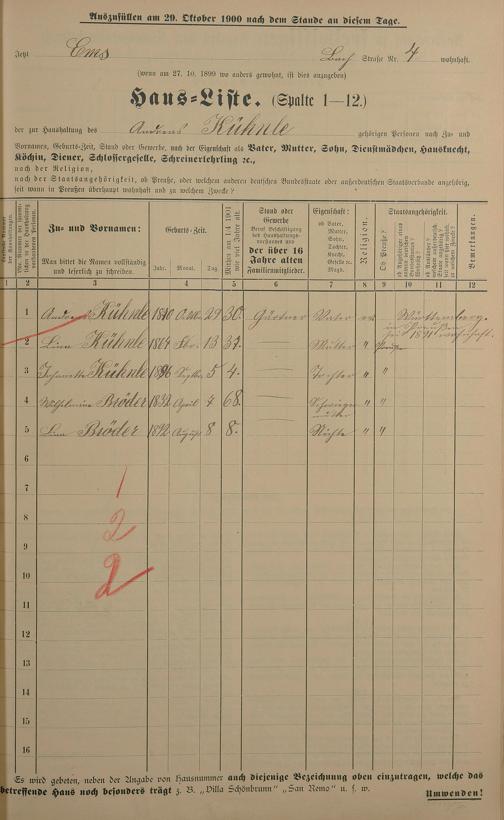 Auszufüllen am 29. Oktober 1900 nach dem Stande an diesem Tage.
Jetzt Ems Bach Straße Nr. 4 wohnhaft.
(wenn am 27. 10. 1899 wo anders gewohnt, ist dies anzugeben)
Haus-Liste. (Spalte 1—12.)
der zur Haushaltung des Andreas Kühnle gehörigen Personen nach Zu- und
Vornamen, Geburts-Zeit, Stand oder Gewerbe, nach der Eigenschaft als Vater, Mutter, Sohn, Dienstmädchen, Hausknecht,
Köchin, Diener, Schlossergeselle, Schreinerlehrling ꝛc.,
nach der Religion,
nach der Staatsangehörigkeit, ob Preuße, oder welchem anderen deutschen Bundesstaate oder außerdeutschen Staatsverbande angehörig,
seit wann in Preußen überhaupt wohnhaft und zu welchem Zwecke?
Zu- und Vornamen:
Man bittet die Namen vollständig
und leserlich zu schreiben.
Geburts-Zeit.
Jahr. Monat. Tag
Stand oder
Gewerbe
der über 16
Jahre alten
Familienmitglieder.
Eigenschaft:
ob Vater,
Mutter,
Sohn,
Tochter,
Knecht,
Geselle ꝛc.
Magd.
Religion.
Staatsangehörigkeit.
Ob Preuße?
Bemerkungen.
1 2 3 4 5 6 7 8 9 10 11 12
1 Andreas Kühnle 29 30. Gärtner Vater ev. Württemberg.
in Preußen
1891 wohnhaft.
2 Lina Kühnle 13 Mutter " Preuße
3 Kühnle 1896 5 4. Tochter " "
4 Wilhelmine Bröder 1832 April 4 68. Schwieger
mutter " "
5 Lina Bröder 1892 August 8 8. Nichte " "
6
7 1
8 2
9
10 2
11
12
13
14
15
16
Es wird gebeten, neben der Angabe von Hausnummer auch diejenige Bezeichnung oben einzutragen, welche das
betreffende Haus noch besonders trägt z. B. „Villa Schönbrunn" „San Remo" u. s. w.
Umwenden!